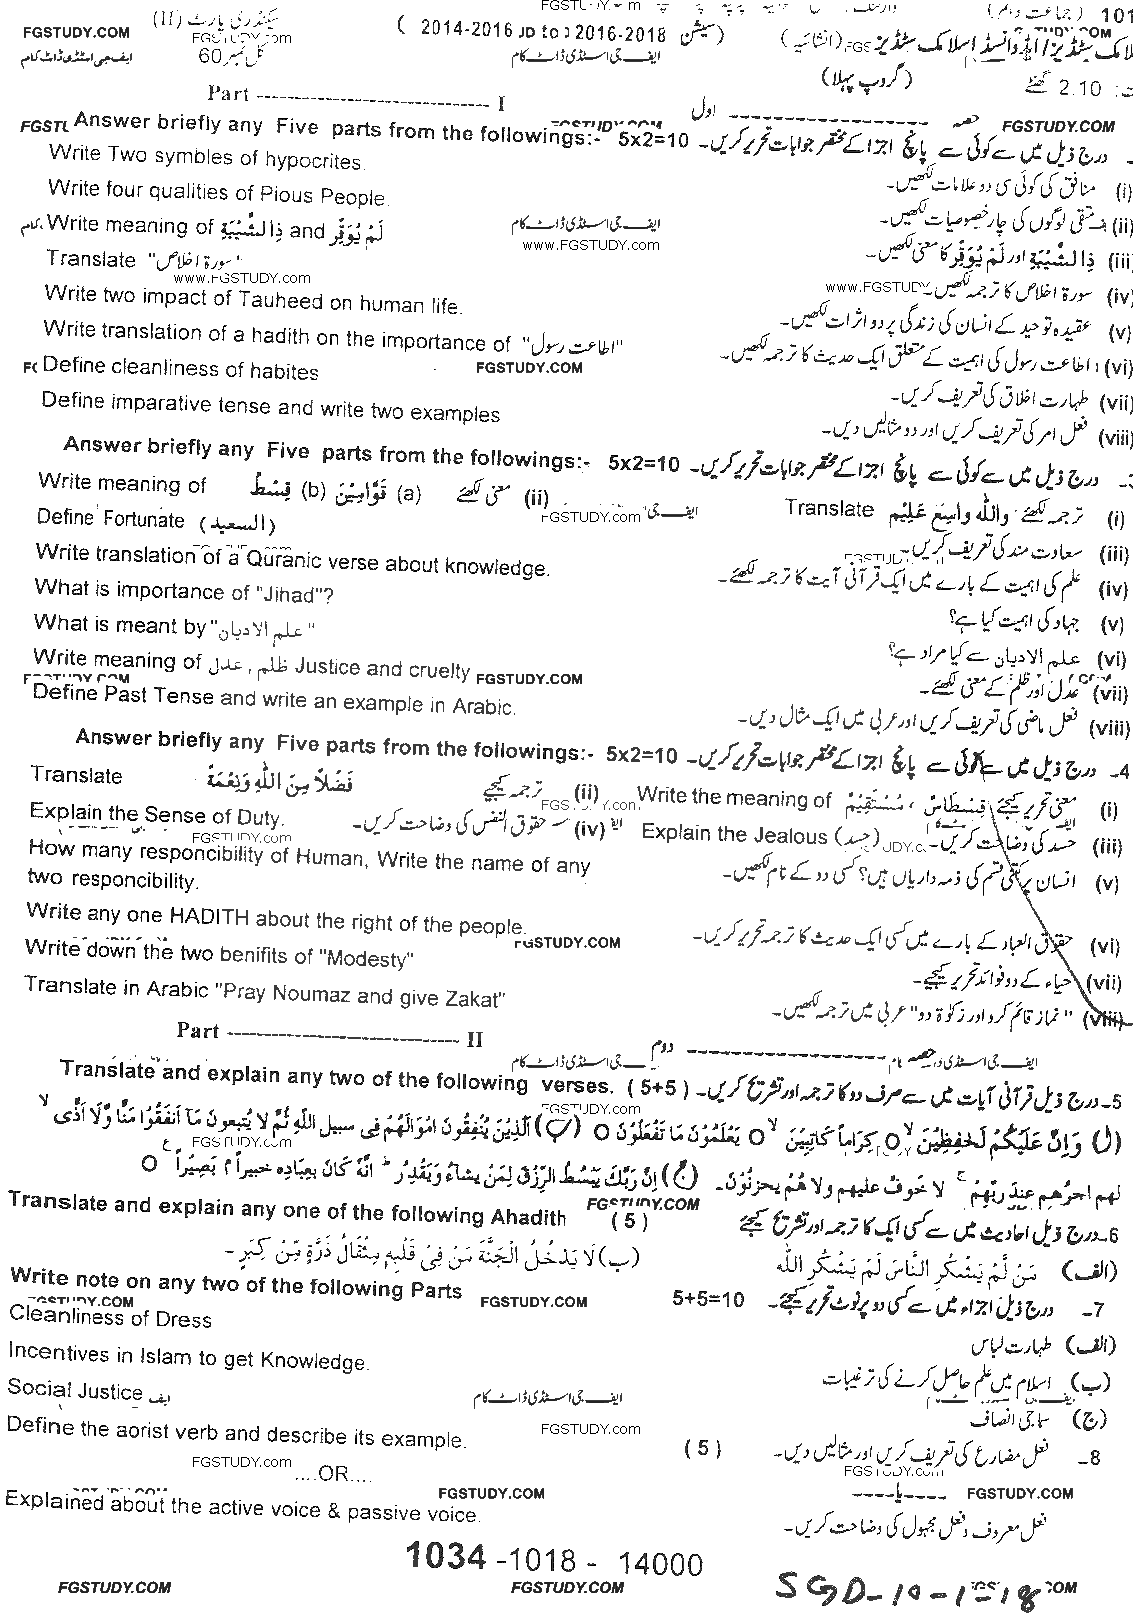 FGSTUDY.COM
سیکنڈری پارٹ (II)
(سیشن 2014-2016 to 2016-2018)
(جماعت دہم) 101
اسلامک سٹڈیز (انشائیہ)
کل نمبر 60
ایف جی اسٹڈی ڈاٹ کام
(گروپ پہلا)
2.10 گھنٹے
Part ---------------------------- I
حصہ -------------------- اول
Answer briefly any Five parts from the followings:- 5x2=10 درج ذیل میں سے کوئی سے پانچ اجزا کے مختصر جوابات تحریر کریں۔
Write Two symbles of hypocrites. منافق کی کوئی سی دو علامات لکھیں۔ (i)
Write four qualities of Pious People. متقی لوگوں کی چار خصوصیات لکھیں۔ (ii)
Write meaning of ذِالشَّيْبَةِ and لَمْ يُوَقِّرْ ذِالشَّيْبَةِ اور لَمْ يُوَقِّرْ کا معنی لکھیں۔ (iii)
Translate "سورۃ اخلاص" سورۃ اخلاص کا ترجمہ لکھیں۔ (iv)
Write two impact of Tauheed on human life. عقیدہ توحید کے انسان کی زندگی پر دو اثرات لکھیں۔ (v)
Write translation of a hadith on the importance of "اطاعت رسول" اطاعت رسول کی اہمیت کے متعلق ایک حدیث کا ترجمہ لکھیں۔ (vi)
Define cleanliness of habites طہارت اخلاق کی تعریف کریں۔ (vii)
Define imparative tense and write two examples فعل امر کی تعریف کریں اور دو مثالیں دیں۔ (viii)
Answer briefly any Five parts from the followings:- 5x2=10 درج ذیل میں سے کوئی سے پانچ اجزا کے مختصر جوابات تحریر کریں۔
Write meaning of قِسْط (b) قَوّٰمِيْنَ (a) معنی لکھئے (ii) Translate وَاللّٰهُ وَاسِعٌ عَلِيْم ترجمہ لکھئے (i)
Define Fortunate (السعید) سعادت مند کی تعریف کریں۔ (iii)
Write translation of a Quranic verse about knowledge. علم کی اہمیت کے بارے میں ایک قرآنی آیت کا ترجمہ لکھئے۔ (iv)
What is importance of "Jihad"? جہاد کی اہمیت کیا ہے؟ (v)
What is meant by "علم الادیان" علم الادیان سے کیا مراد ہے؟ (vi)
Write meaning of ظلم ، عدل Justice and cruelty عدل اور ظلم کے معنی لکھئے۔ (vii)
Define Past Tense and write an example in Arabic. فعل ماضی کی تعریف کریں اور عربی میں ایک مثال دیں۔ (viii)
Answer briefly any Five parts from the followings:- 5x2=10 درج ذیل میں سے کوئی سے پانچ اجزا کے مختصر جوابات تحریر کریں۔ -4
Translate فَضْلًا مِّنَ اللّٰهِ وَنِعْمَةً ترجمہ کیجیے (ii) Write the meaning of قِسْطَاسْ ، مُسْتَقِيْمْ معنی تحریر کیجیے (i)
Explain the Sense of Duty. حقوق النفس کی وضاحت کریں۔ (iv) Explain the Jealous (حسد) حسد کی وضاحت کریں۔ (iii)
How many responcibility of Human, Write the name of any انسان پر کتنی قسم کی ذمہ داریاں ہیں؟ کسی دو کے نام لکھیں۔ (v)
two responcibility.
Write any one HADITH about the right of the people. حقوق العباد کے بارے میں کسی ایک حدیث کا ترجمہ تحریر کریں۔ (vi)
Write down the two benifits of "Modesty" حیاء کے دو فوائد تحریر کیجیے۔ (vii)
Translate in Arabic "Pray Noumaz and give Zakat" "نماز قائم کرو اور زکوٰۃ دو" عربی میں ترجمہ لکھیں۔ (viii)
Part ---------------------------- II
حصہ -------------------- دوم
Translate and explain any two of the following verses. (5+5) درج ذیل قرآنی آیات میں سے صرف دو کا ترجمہ اور تشریح کریں۔ -5
(ا) وَاِنَّ عَلَيْكُمْ لَحٰفِظِيْنَ ۙ كِرَاماً كَاتِبِيْنَ ۙ يَعْلَمُوْنَ مَا تَفْعَلُوْنَ ○ (ب) اَلَّذِيْنَ يُنْفِقُوْنَ اَمْوَالَهُمْ فِى سبيل اللّٰهِ ثُمَّ لَا يُتبعونَ مَآ اَنفَقُوْا مَنًّا وَّلَآ اَذًى ۙ
لهم اجرُهم عِندَ ربِّهِمْ ۚ لا خَوفٌ عليهم ولا هُمْ يحزنُوْنَ۔ (ج) اِنَّ رَبَّكَ يَبْسُطُ الرِّزْقَ لِمَنْ يشآءُ وَيَقْدِرُ ؕ اِنَّهٗ كَانَ بِعِبَادِهٖ خبيراً ۢ بَصِيْراً ○
Translate and explain any one of the following Ahadith (5) درج ذیل احادیث میں سے کسی ایک کا ترجمہ اور تشریح کیجئے -6
(الف) مَنْ لَّمْ يَشْكُرِ النَّاسَ لَمْ يَشْكُرِ اللّٰه (ب) لَا يَدْخُلُ الْجَنَّةَ مَنْ فِىْ قَلْبِهٖ مِثْقَالُ ذَرَّةٍ مِّنْ كِبَرٍ۔
Write note on any two of the following Parts 5+5=10 درج ذیل اجزاء میں سے کسی دو پر نوٹ تحریر کیجیے۔ -7
Cleanliness of Dress طہارت لباس (الف)
Incentives in Islam to get Knowledge. اسلام میں علم حاصل کرنے کی ترغیبات (ب)
Social Justice سماجی انصاف (ج)
Define the aorist verb and describe its example. (5) فعل مضارع کی تعریف کریں اور مثالیں دیں۔ -8
....OR.... ----یا----
Explained about the active voice & passive voice. فعل معروف و فعل مجہول کی وضاحت کریں۔
1034 -1018 - 14000
SGD-10-1-18
FGSTUDY.COM